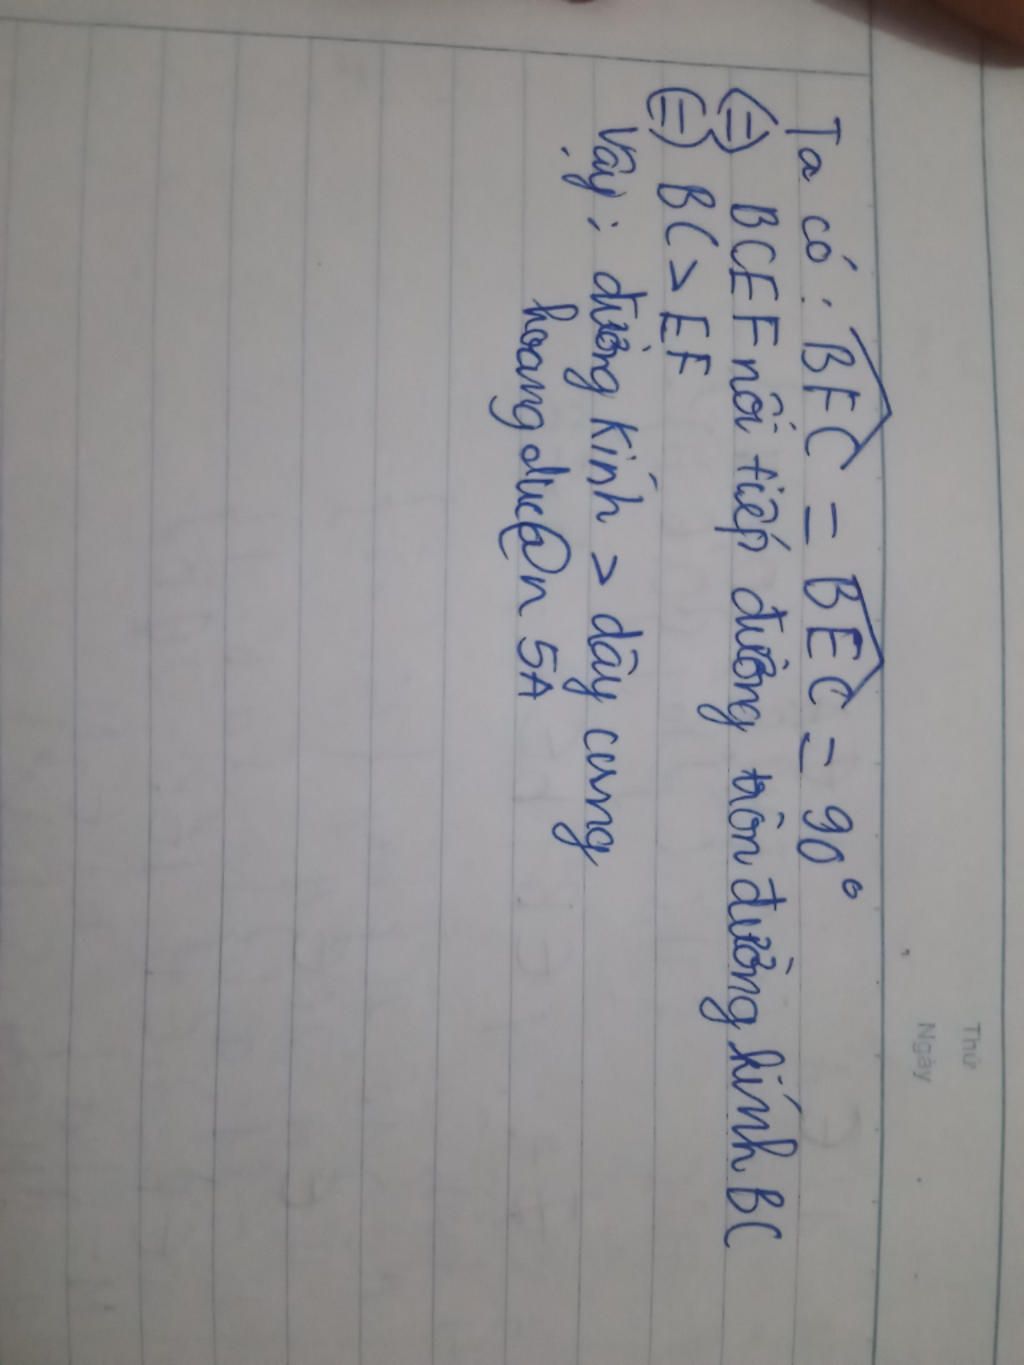 Thứ
Ngày
Ta có: BFC = BEC = 90°
⇔ BCEF nội tiếp đường tròn đường kính BC
⇔ BC > EF
Vậy: đường kính > dây cung
hoangduc@n 5A